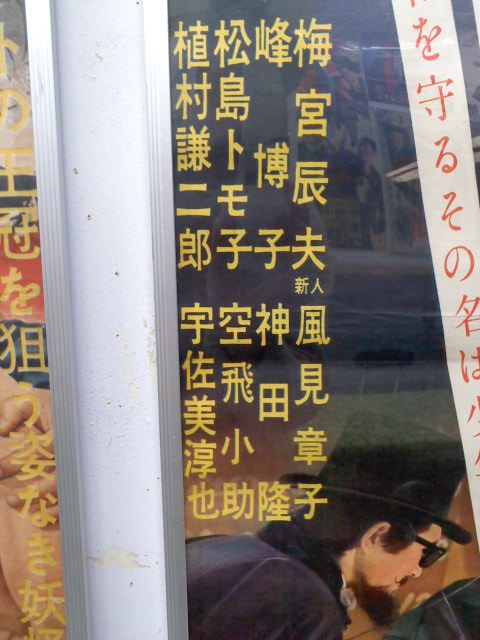 を守るその名は少年
梅宮辰夫
新人 風見章子
峰博子 神田隆
松島トモ子 空飛小助
植村謙二郎 宇佐美淳也
トの王冠を狙う姿なき妖